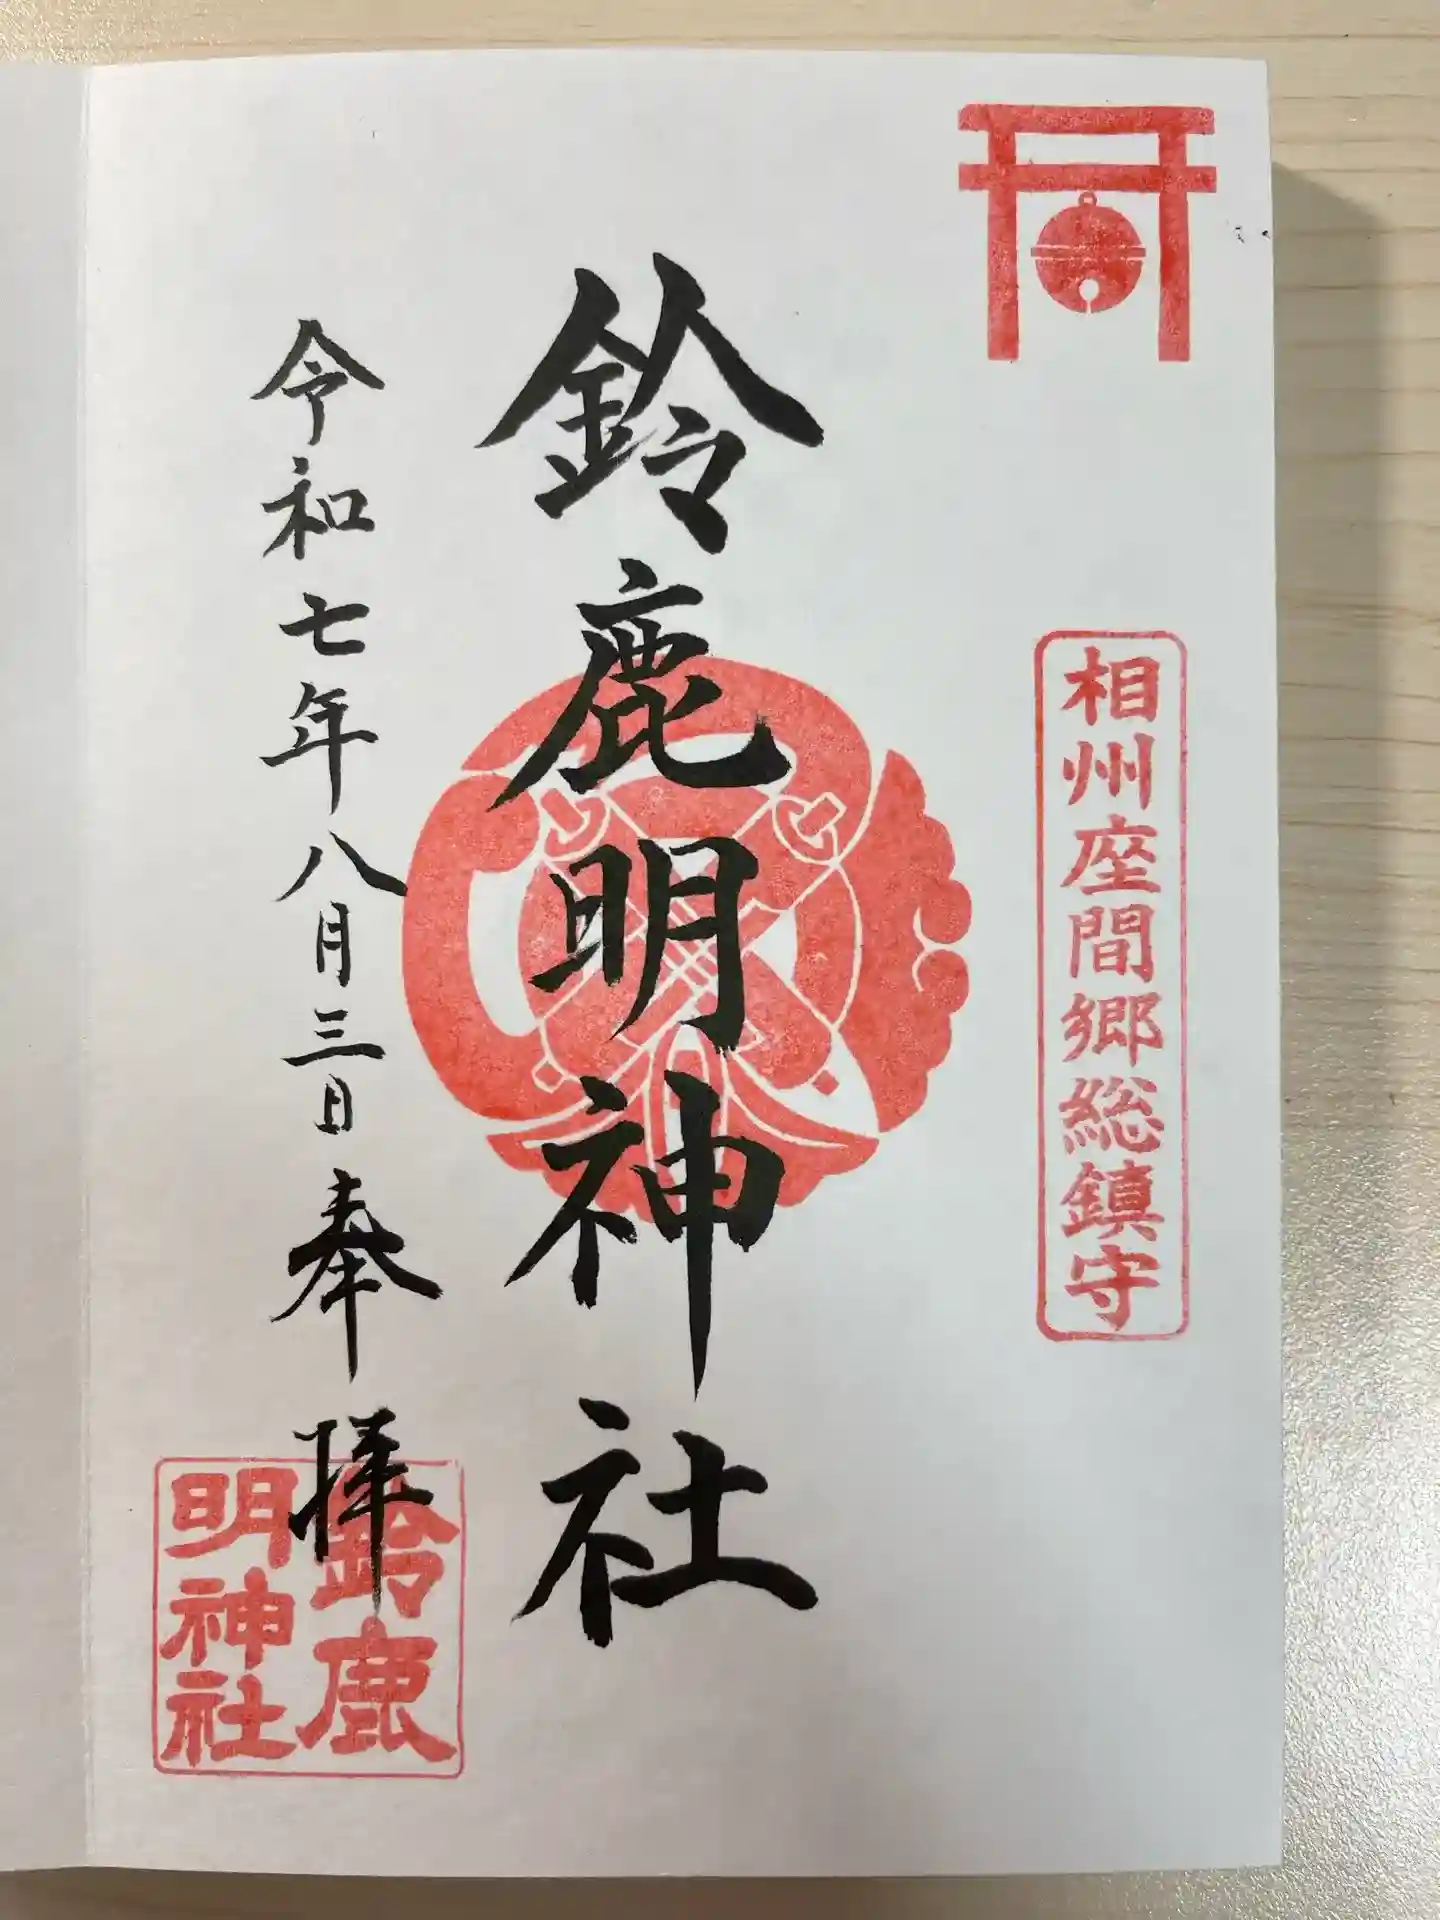 相州座間郷総鎮守
鈴鹿明神社
令和七年八月三日奉拝
鈴鹿
明神社